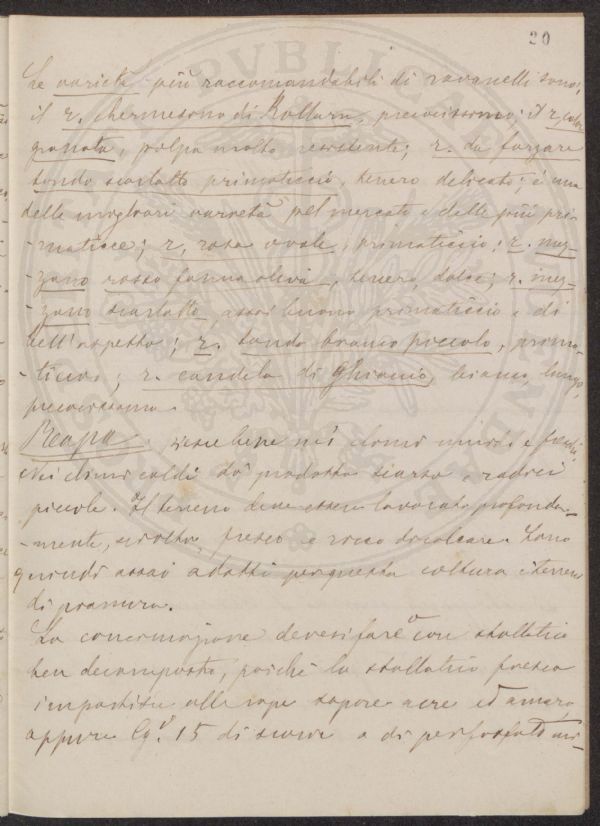 20
Le varietà più raccomandabili di ravanelli sono;
il r. chermesono di Rollarn, precocissimo; il r. color
granata, polpa molto resistente; r. da forzare
tondo scarlatto primaticcio, tenero delicato; è una
delle migliori varietà pel mercato e delle più pri-
-maticce; r. rosa ovale, primaticcio; r. mez-
zano rosso forma oliva, tenero, dolce; r. mez-
-zano scarlatto, assai buono primaticcio e di
bell'aspetto; r. tondo bianco piccolo, prima-
-ticcio; r. candela di Ghiaccio, bianco, lungo,
precocissimo.
Rapa, riesce bene nei climi umidi e freschi,
Nei climi caldi dà prodotto scarso, e radici
piccole. Il terreno deve essere lavorato profonda-
-mente, sciolto, fresco e ricco di calcare. Sono
quindi assai adatti per questa coltura i terreni
di pianura.
La concimazione devesi fare o con stallatico
ben decomposto, poichè lo stallatico fresco
impartisce alle rape sapore acre ed amaro,
oppure Cg. 15 di scorie o di perfosfato mi-